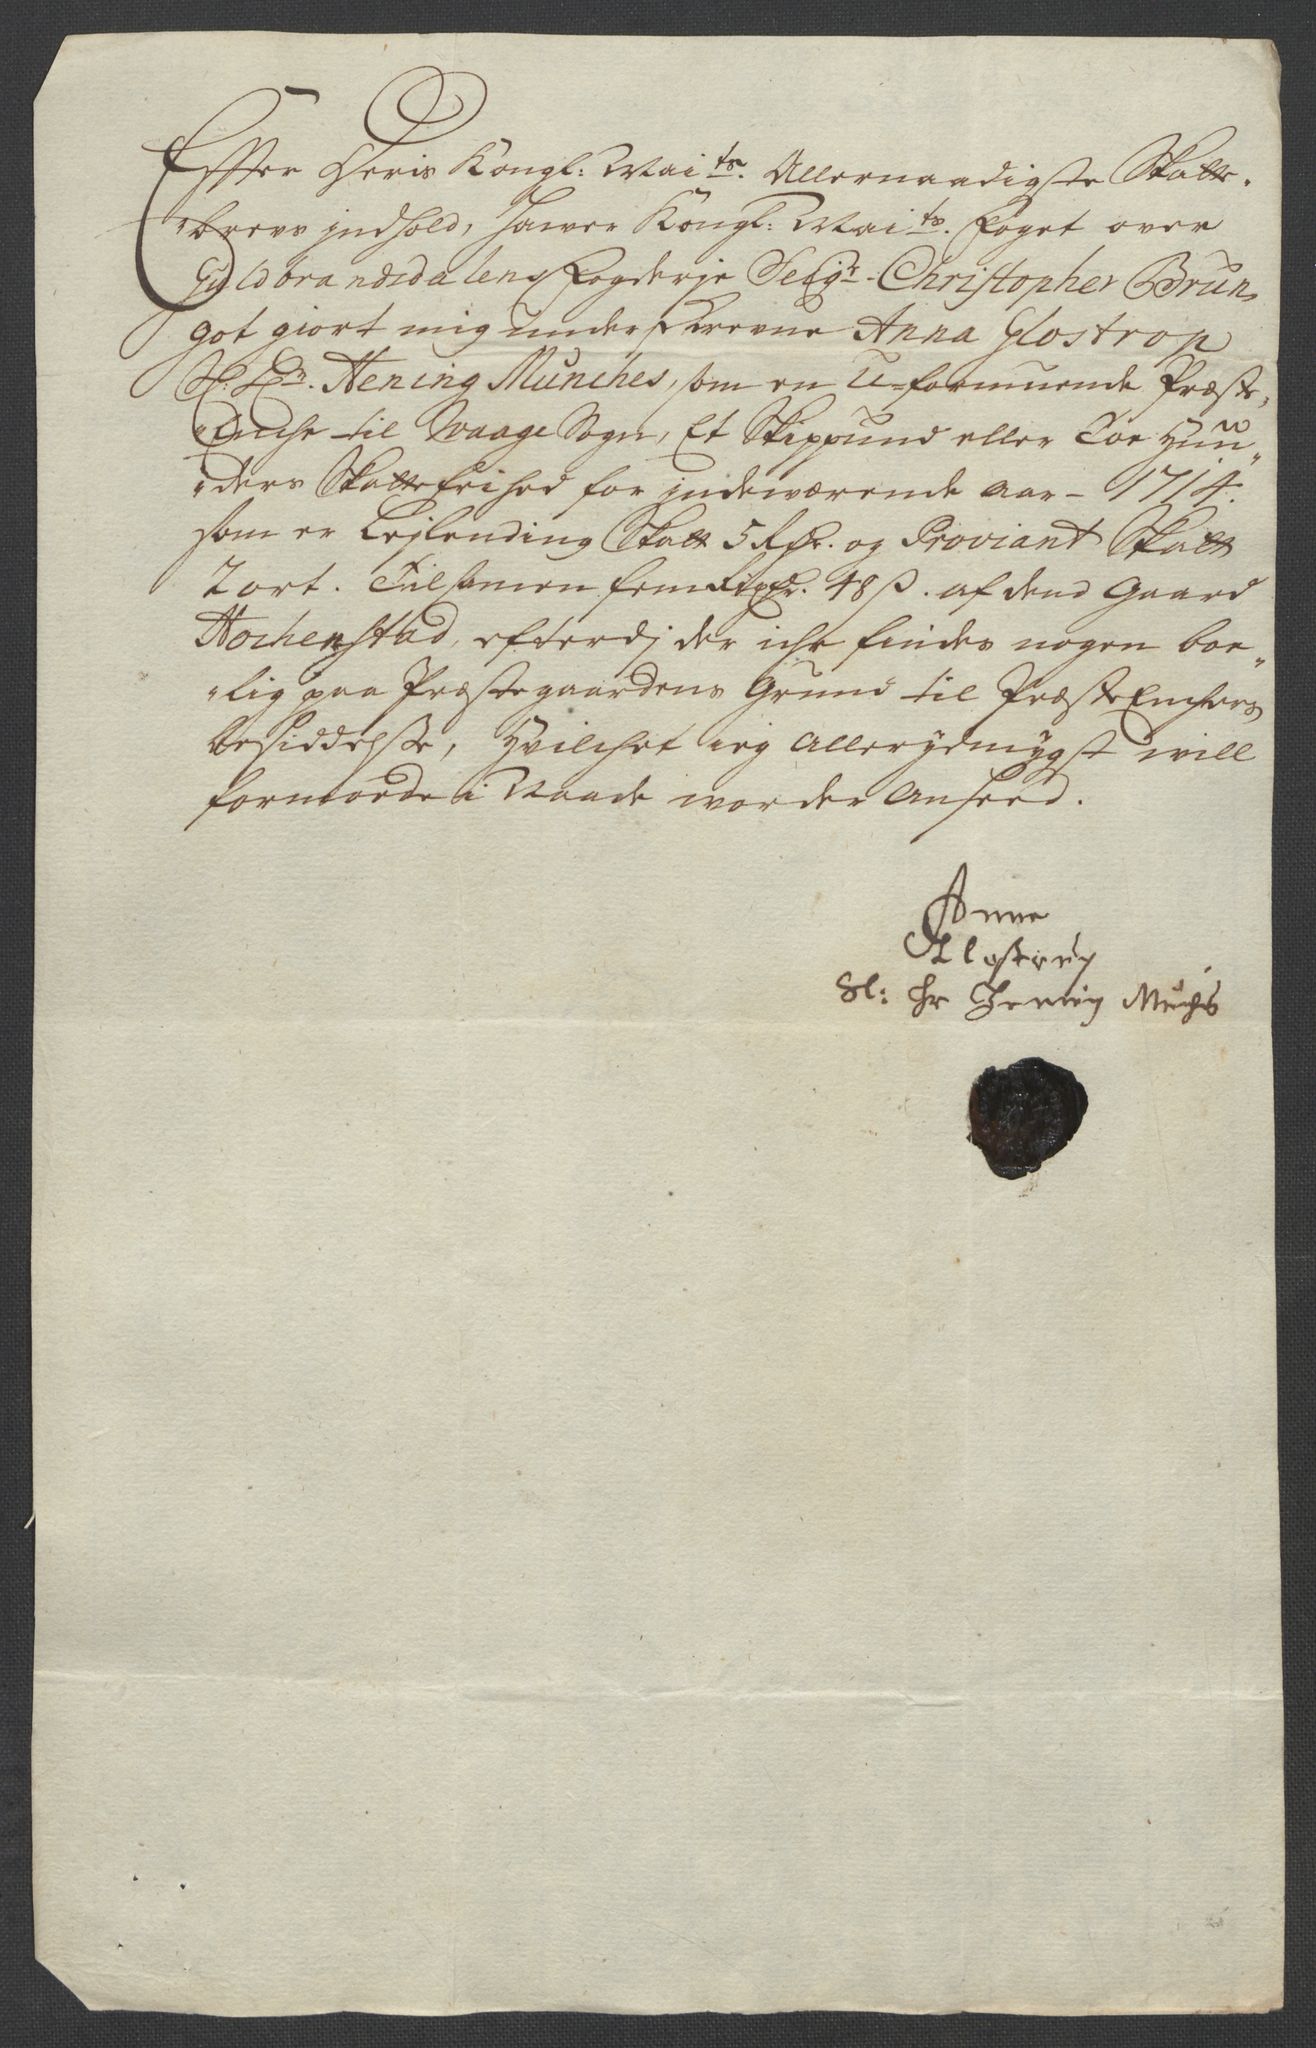 Effter Deris Kongl: Maits. Allernaadigste Skatte-
brevs jndhold, hawer Kongl: Maits. foget over
Guldbrandsdalens fogderje Seigr. Christopher Brun,
got giort mig underskrevne Anna Glostrop
Sl: Hr. Hening Munches, som en U-formuende Præste,
Enche til Waage Sogn, Et Skippund eller Toe Huu"
"ders Skattefrihed for jndeværende aar - 1714.
som er Lejlending Skatt 5 Rdr. og Proviant Skatt
2 ort. Tilsamen fem Rixdr. 48 ß. af dend Gaard
Hochenstad, efterdj der iche findes nogen boe"
"lig paa Præstegaardens Grund til PræsteEnchers
besiddelse, Hvilchet ieg allerydmygst will
formode i Naade worder Anseed.
Anne
Glostrup
Sl: Hr Hening Munchs